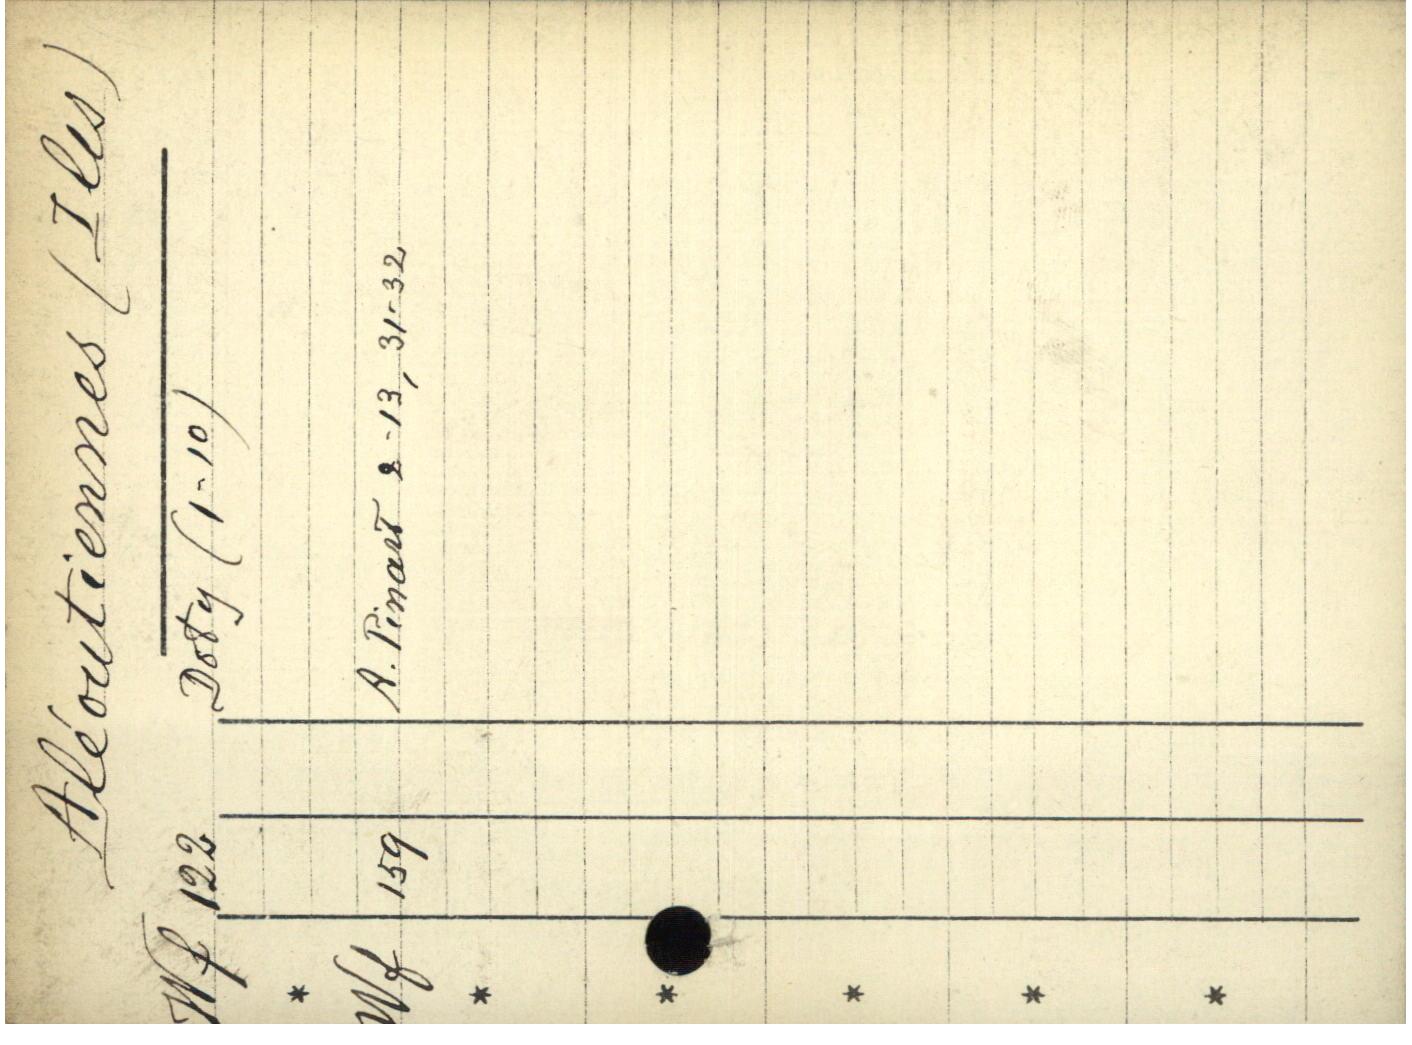 Aléoutiennes (Iles)
Wf 122 Doty (1-10)
*
Wf 159 A. Pinart 2-13, 31-32
*
*
*
*
*